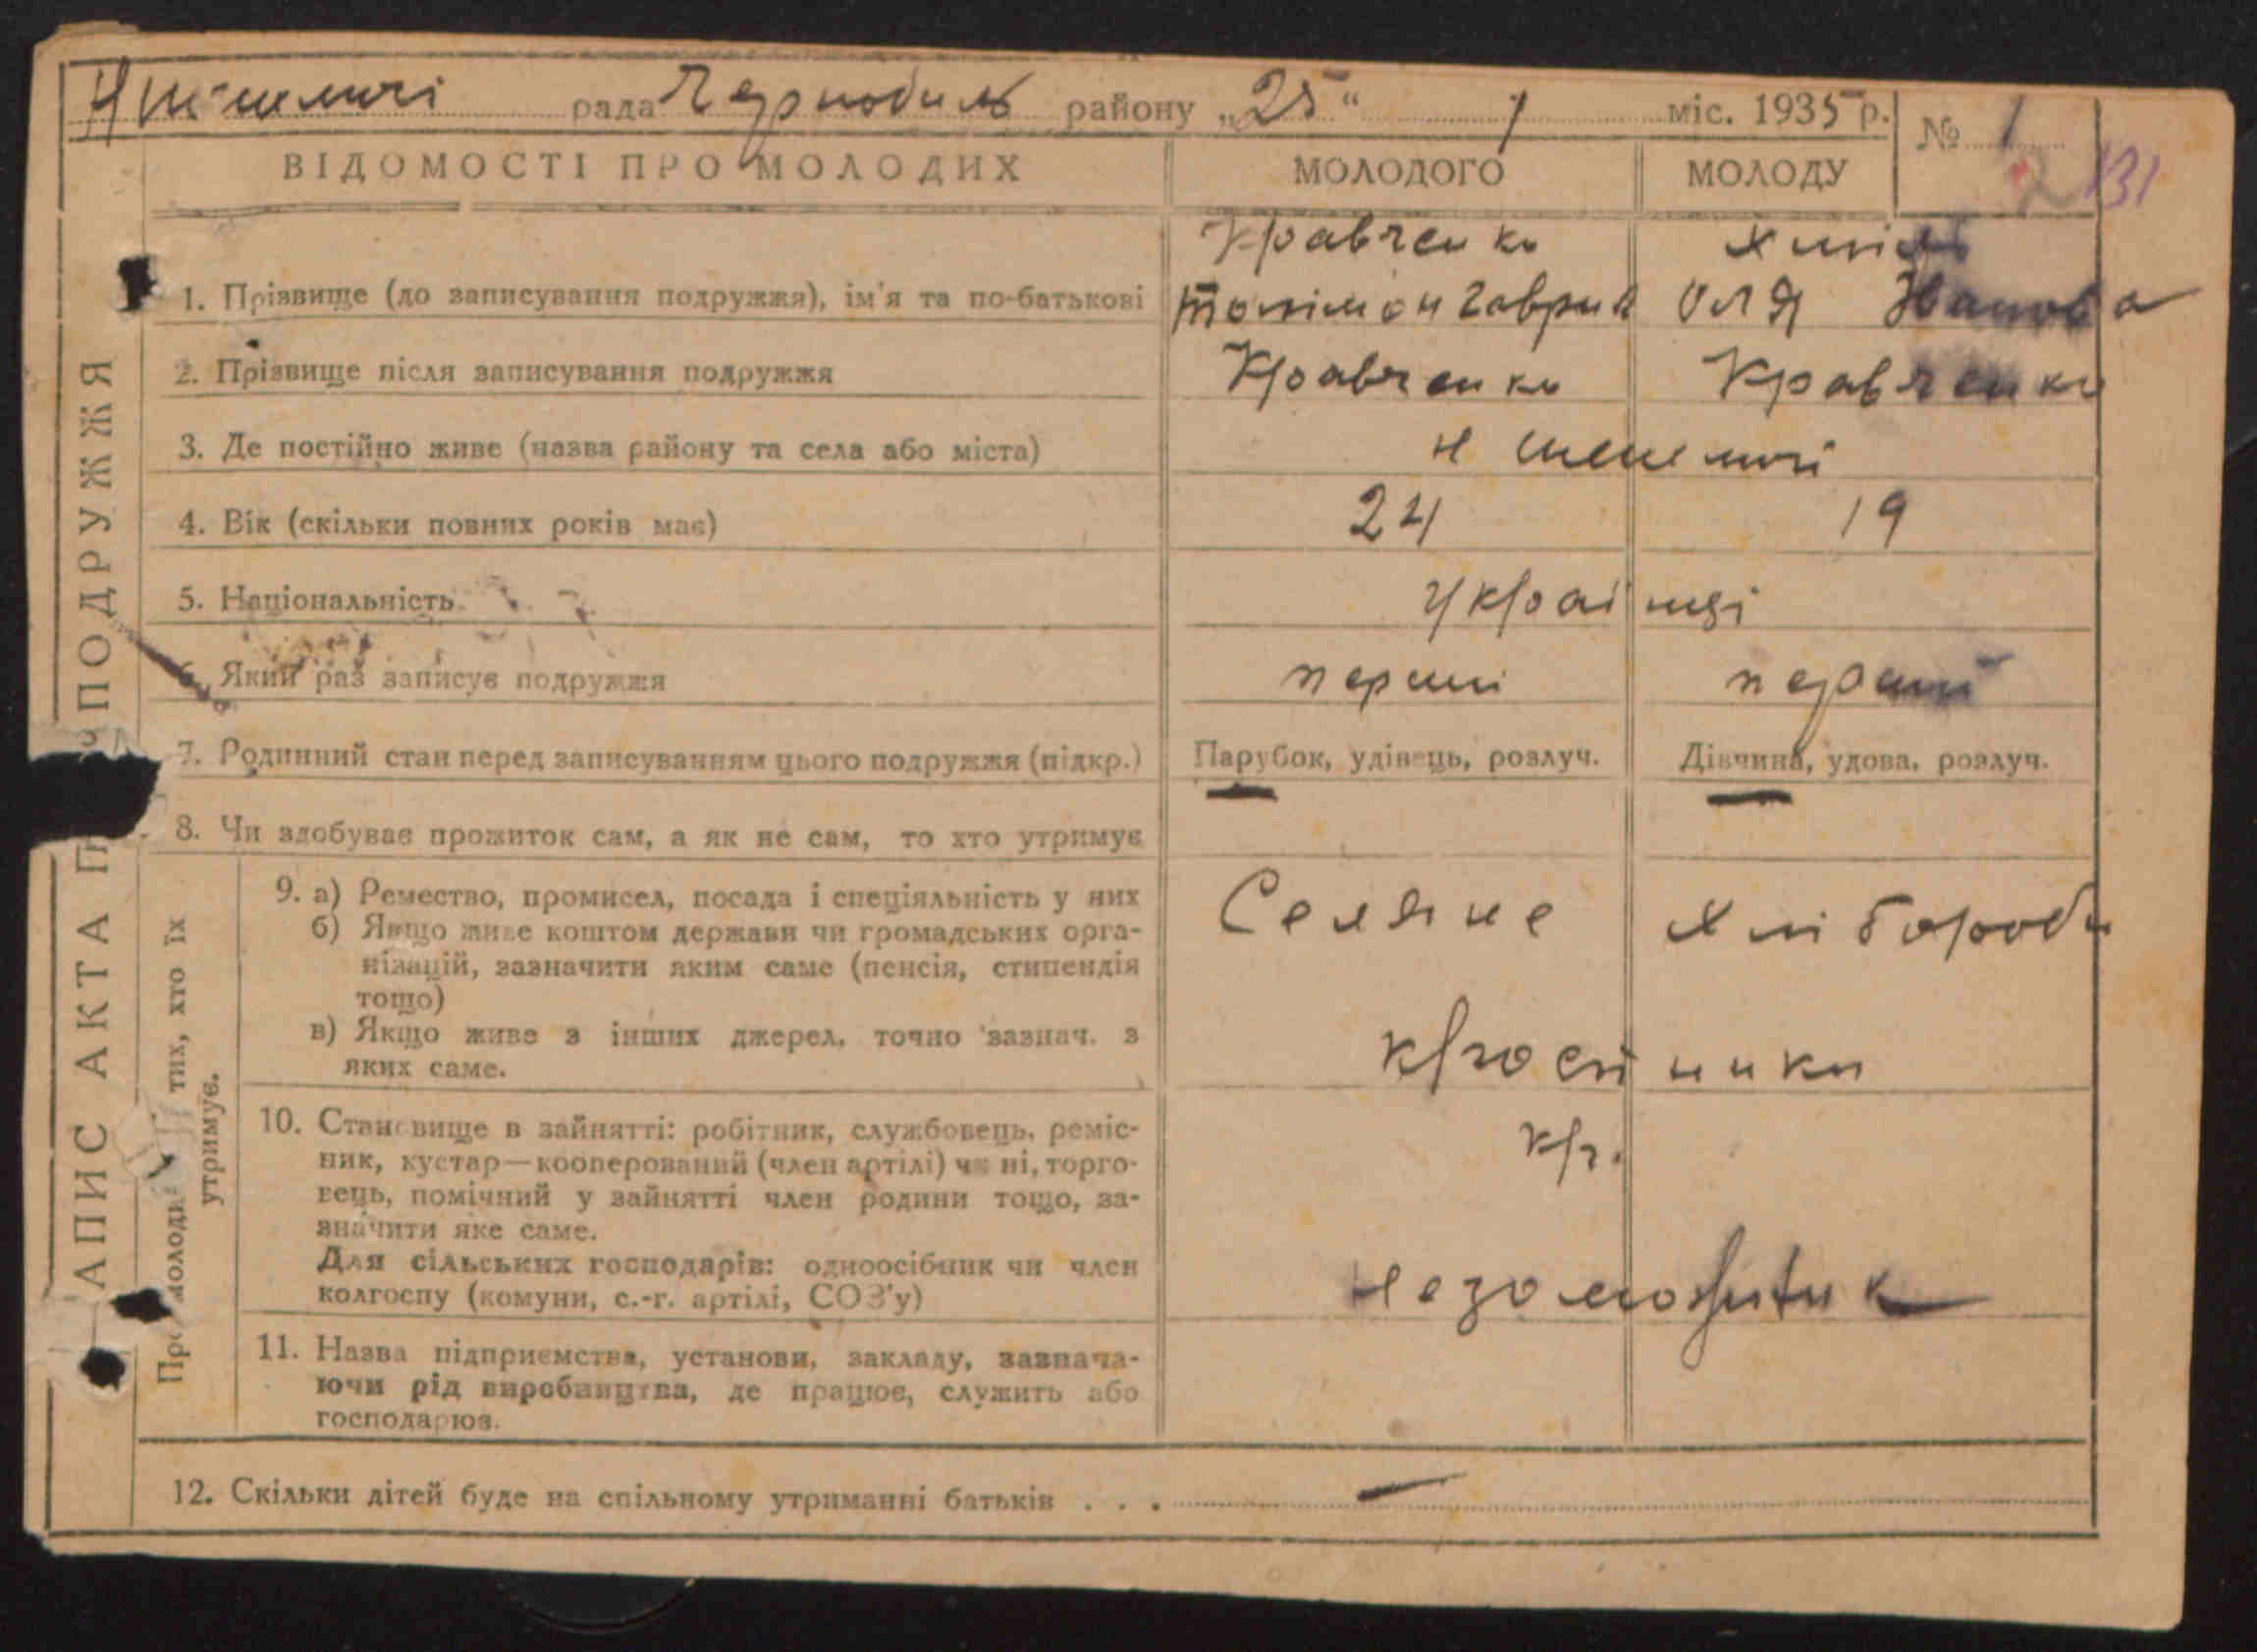 рада Чернобиль району „25“ 1 міс. 1935 р. № 1
131
ВІДОМОСТІ ПРО МОЛОДИХ МОЛОДОГО МОЛОДУ
Кравченко
1. Прізвище (до записування подружжя), ім'я та по-батькові Оля Іванова
2. Прізвище після записування подружжя Кравченко Кравченко
3. Де постійно живе (назва району та села або міста)
4. Вік (скільки повних років має) 24 19
5. Національність українці
6. Який раз записує подружжя перши перший
7. Родинний стан перед записуванням цього подружжя (підкр.) Парубок, удівець, розлуч. Дівчина, удова, розлуч.
8. Чи здобуває прожиток сам, а як не сам, то хто утримує
9. а) Ремество, промисел, посада і спеціяльність у них Селяне Хлібороби
б) Якщо живе коштом держави чи громадських орга-
нізацій, зазначити яким саме (пенсія, стипендія
тощо)
в) Якщо живе з інших джерел, точно зазнач. з
яких саме.
10. Становище в зайнятті: робітник, службовець, реміс-
ник, кустар—кооперований (член артілі) чи ні, торго-
вець, помічний у зайнятті член родини тощо, за-
значити яке саме.
Для сільських господарів: одноосібник чи член
колгоспу (комуни, с.-г. артілі, СОЗ'у)
11. Назва підприємства, установи, закладу, зазнача-
ючи рід виробництва, де працює, служить або
господарює.
12. Скільки дітей буде на спільному утриманні батьків . . . —
АПИС АКТА П ПОДРУЖЖЯ
молоди тих, хто їх
утримує.